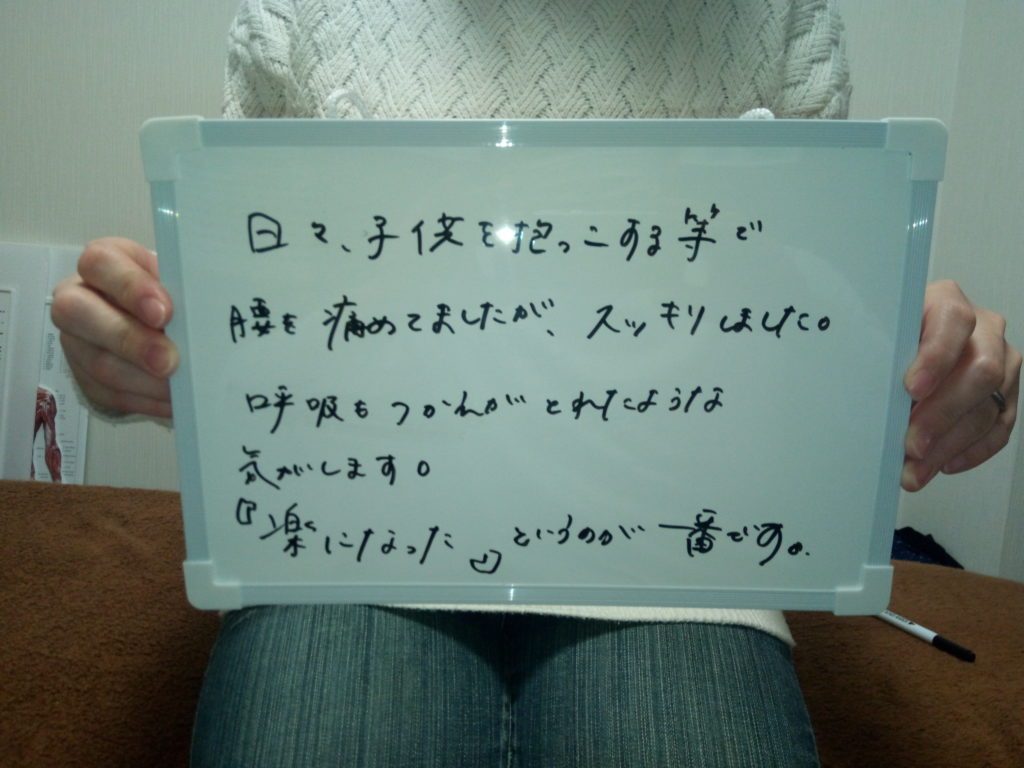 日々、子供を抱っこする等で
腰を痛めてましたが、スッキリしました。
呼吸もつかれがとれたような
気がします。
『楽になった』というのが一番です。